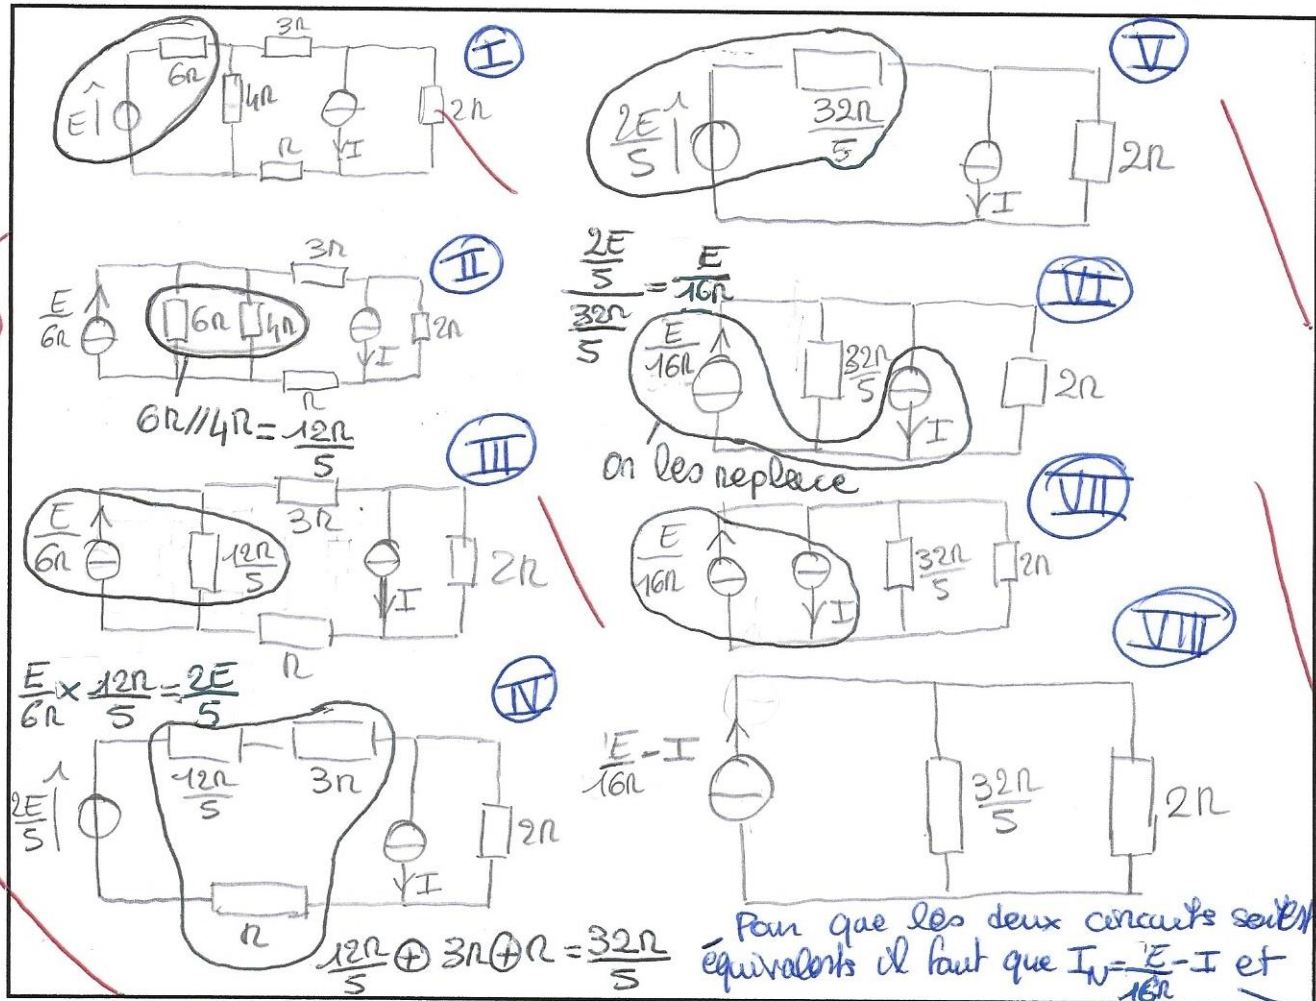 I
3R
6R
4R
E
I
2R
R
II
3R
E/6R
6R
4R
I
2R
R
6R//4R = 12R/5
III
3R
E/6R
12R/5
I
2R
R
E/6R x 12R/5 = 2E/5
IV
12R/5
3R
2E/5
I
2R
R
12R/5 ⊕ 3R ⊕ R = 32R/5
V
2E/5
32R/5
I
2R
2E/5 / 32R/5 = E/16R
VI
E/16R
32R/5
I
2R
on les replace
VII
E/16R
I
32R/5
2R
VIII
E/16R - I
32R/5
2R
Pour que les deux circuits soient
équivalents il faut que I_N = E/16R - I et